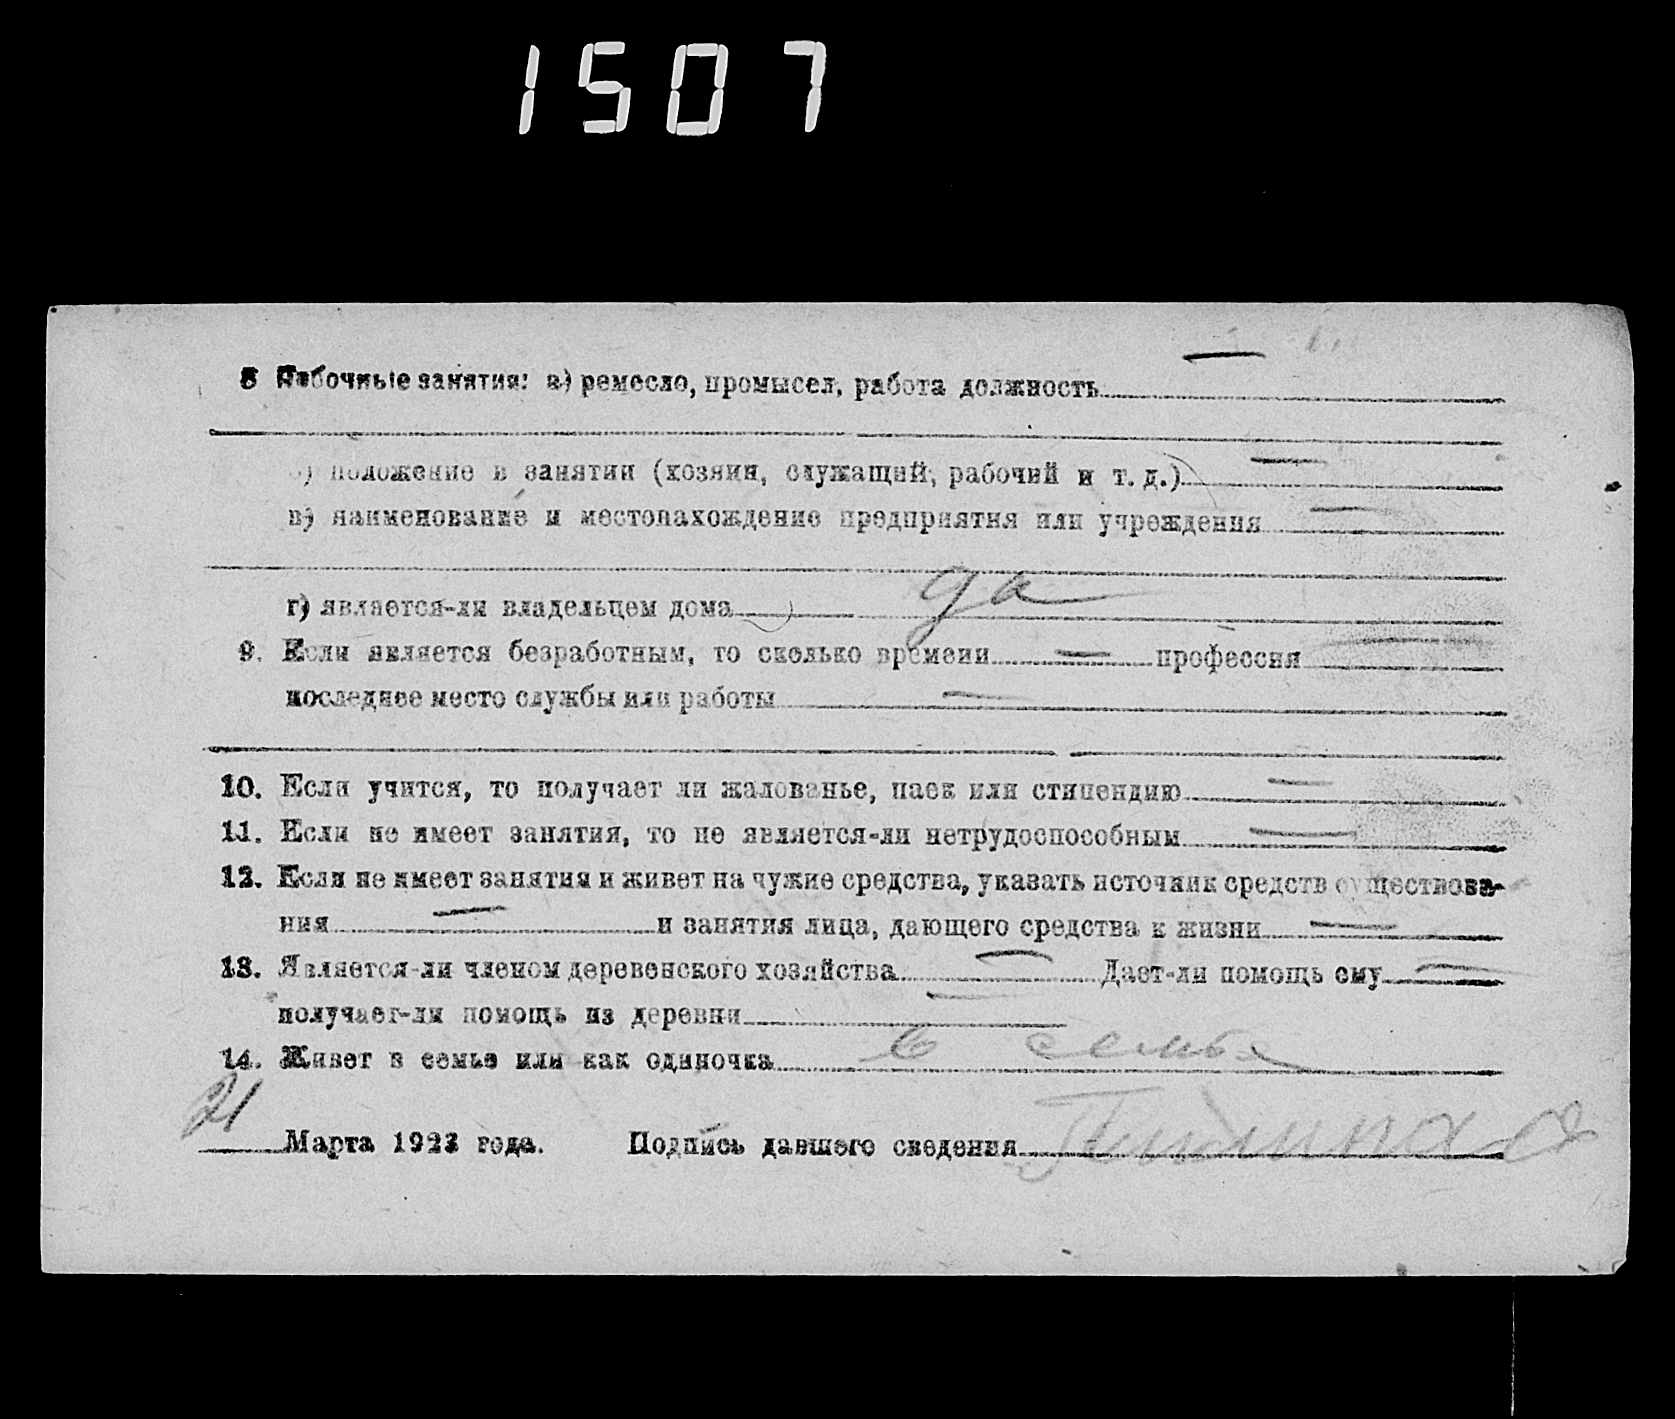 1507
8 Побочные занятия: а) ремесло, промысел, работа должность —
б) положение в занятии (хозяин, служащий, рабочий и т. д.) —
в) наименование и местонахождение предприятия или учреждения —
г) является-ли владельцем дома да
9. Если является безработным, то сколько времени — профессия —
последнее место службы или работы —
10. Если учится, то получает ли жалованье, паек или стипендию —
11. Если не имеет занятия, то не является-ли нетрудоспособным —
12. Если не имеет занятия и живет на чужие средства, указать источник средств существова-
ния — и занятия лица, дающего средства к жизни —
13. Является-ли членом деревенского хозяйства — Дает-ли помощь ему —
получает-ли помощь из деревни —
14. Живет в семье или как одиночка в семье
21 Марта 1923 года. Подпись давшего сведения